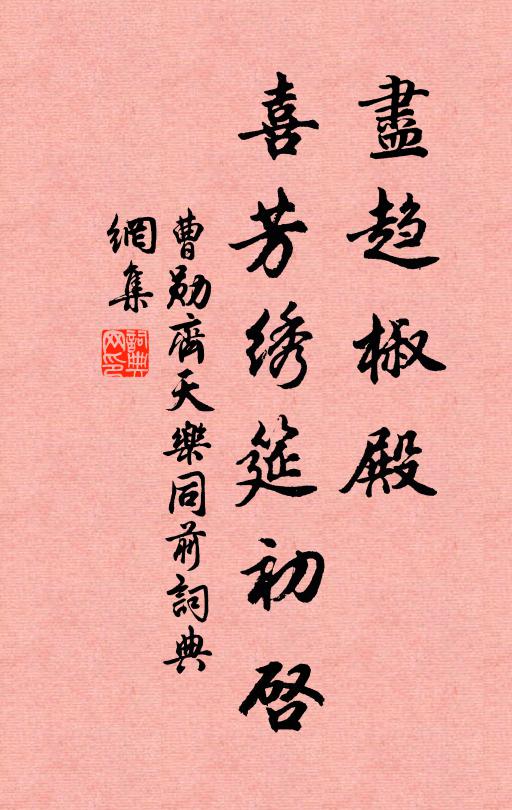 盡趋椒殿
喜芳绣筵初啓
曹勛齊天樂同前詞典
網集
詞典
网印